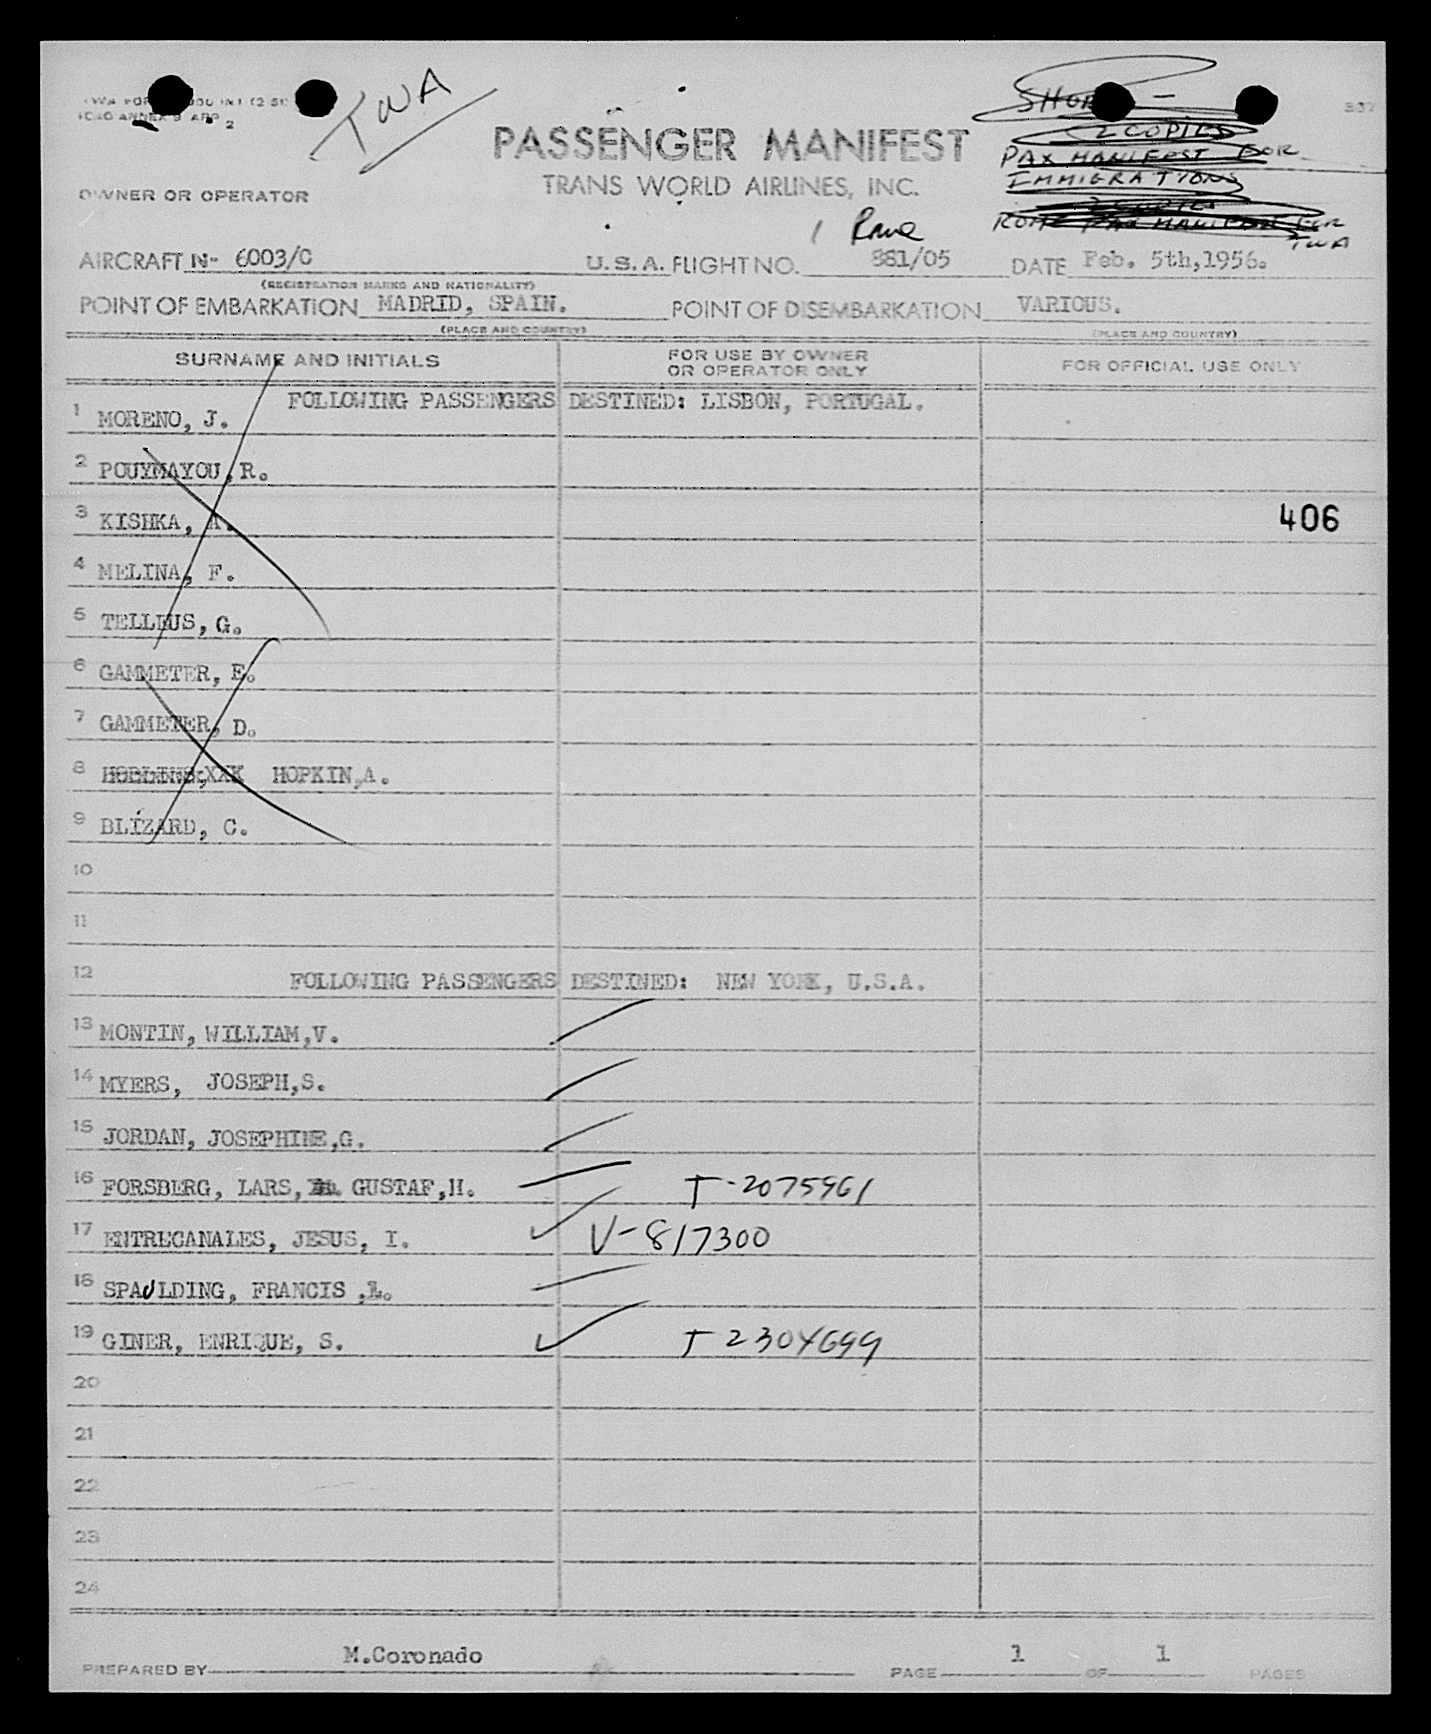 TWA
ICAO ANNEX 9 APP 2
SHOR -
2 COPIES
PAX MANIFEST FOR
IMMIGRATIONS
ROME PAX MANIFEST FOR
TWA
PASSENGER MANIFEST
TRANS WORLD AIRLINES, INC.
OWNER OR OPERATOR
1 Rome
AIRCRAFT N- 6003/C U.S.A. FLIGHT NO. 881/05 DATE Feb. 5th,1956.
(REGISTRATION MARKS AND NATIONALITY)
POINT OF EMBARKATION MADRID, SPAIN. POINT OF DISEMBARKATION VARIOUS.
(PLACE AND COUNTRY) (PLACE AND COUNTRY)
SURNAME AND INITIALS FOR USE BY OWNER OR OPERATOR ONLY FOR OFFICIAL USE ONLY
FOLLOWING PASSENGERS DESTINED: LISBON, PORTUGAL.
1 MORENO, J.
2 POUYMAYOU,R.
3 KISHKA, A.
406
4 MELINA, F.
5 TELLEUS, G.
6 GAMMETER, E.
7 GAMMETER, D.
8 HOPKIN,A.
9 BLIZARD, C.
10
11
12 FOLLOWING PASSENGERS DESTINED: NEW YORK, U.S.A.
13 MONTIN, WILLIAM,V.
14 MYERS, JOSEPH,S.
15 JORDAN, JOSEPHINE,G.
16 FORSBERG, LARS, GUSTAF,H. T-2075961
17 ENTRECANALES, JESUS, I. V-817300
18 SPAULDING, FRANCIS ,L.
19 GINER, ENRIQUE, S. T 2304699
20
21
22
23
24
PREPARED BY M.Coronado PAGE 1 OF 1 PAGES